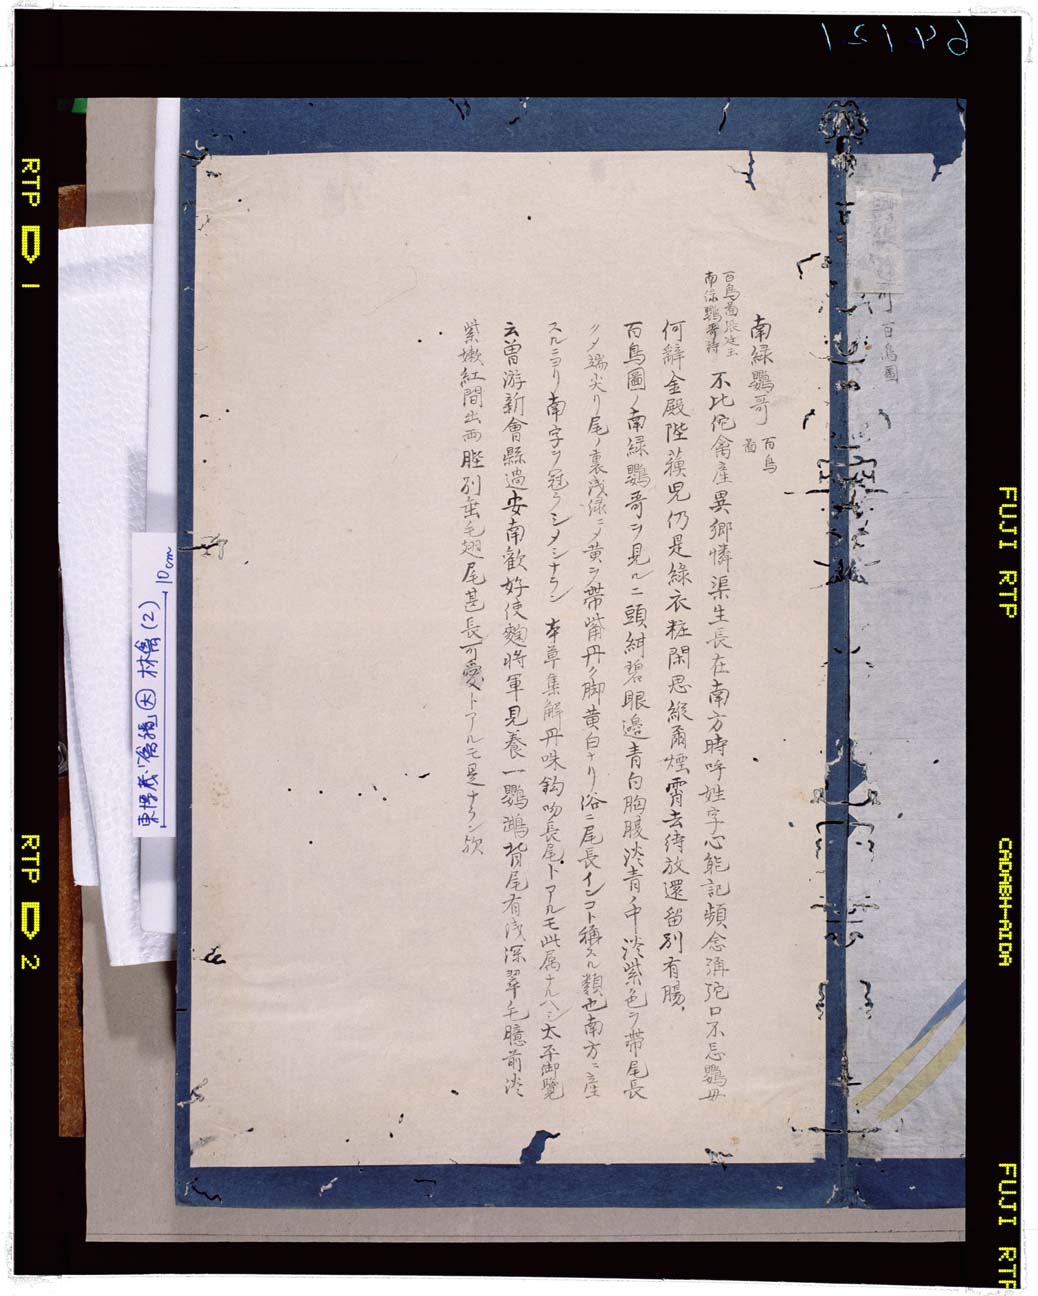 南緑鸚哥 百鳥圖
百鳥圖張廷玉
南緑鸚哥詩
不比佗禽産異郷憐渠生長在南方時呼姓字心能記頻念 口不忘鸚毋
何辭金殿陛 児仍是綠衣粧閑思縱爾煙霄去待放還留別有腸
百鳥圖ノ南緑鸚哥ヲ見ルニ頭紺碧眼邉青白胸腹淡青ノ中淡紫色ヲ帶尾長
クメ端尖リ尾ノ裏浅緑ニメ黄ヲ帶觜丹ク脚黄白ナリ俗ニ尾長インコト稱スル類也南方ニ産
スルニヨリ南字ヲ冠ラシメシナラン 本草集解丹咮鈎吻長尾トアルモ此属ナルヘシ太平御覽
云曽游新會縣過安南歡好使 將軍見養一鸚鵡背尾有浅深翠毛臆前淡
紫嫩紅間出兩 別 毛翅尾甚長可愛トアルモ是ナラン歟
百鳥圖
東博蔵「禽譜」 林禽(2)
10cm
64121
RTP 1
RTP 2
FUJI RTP
CADAEH-AIDA
FUJI RTP